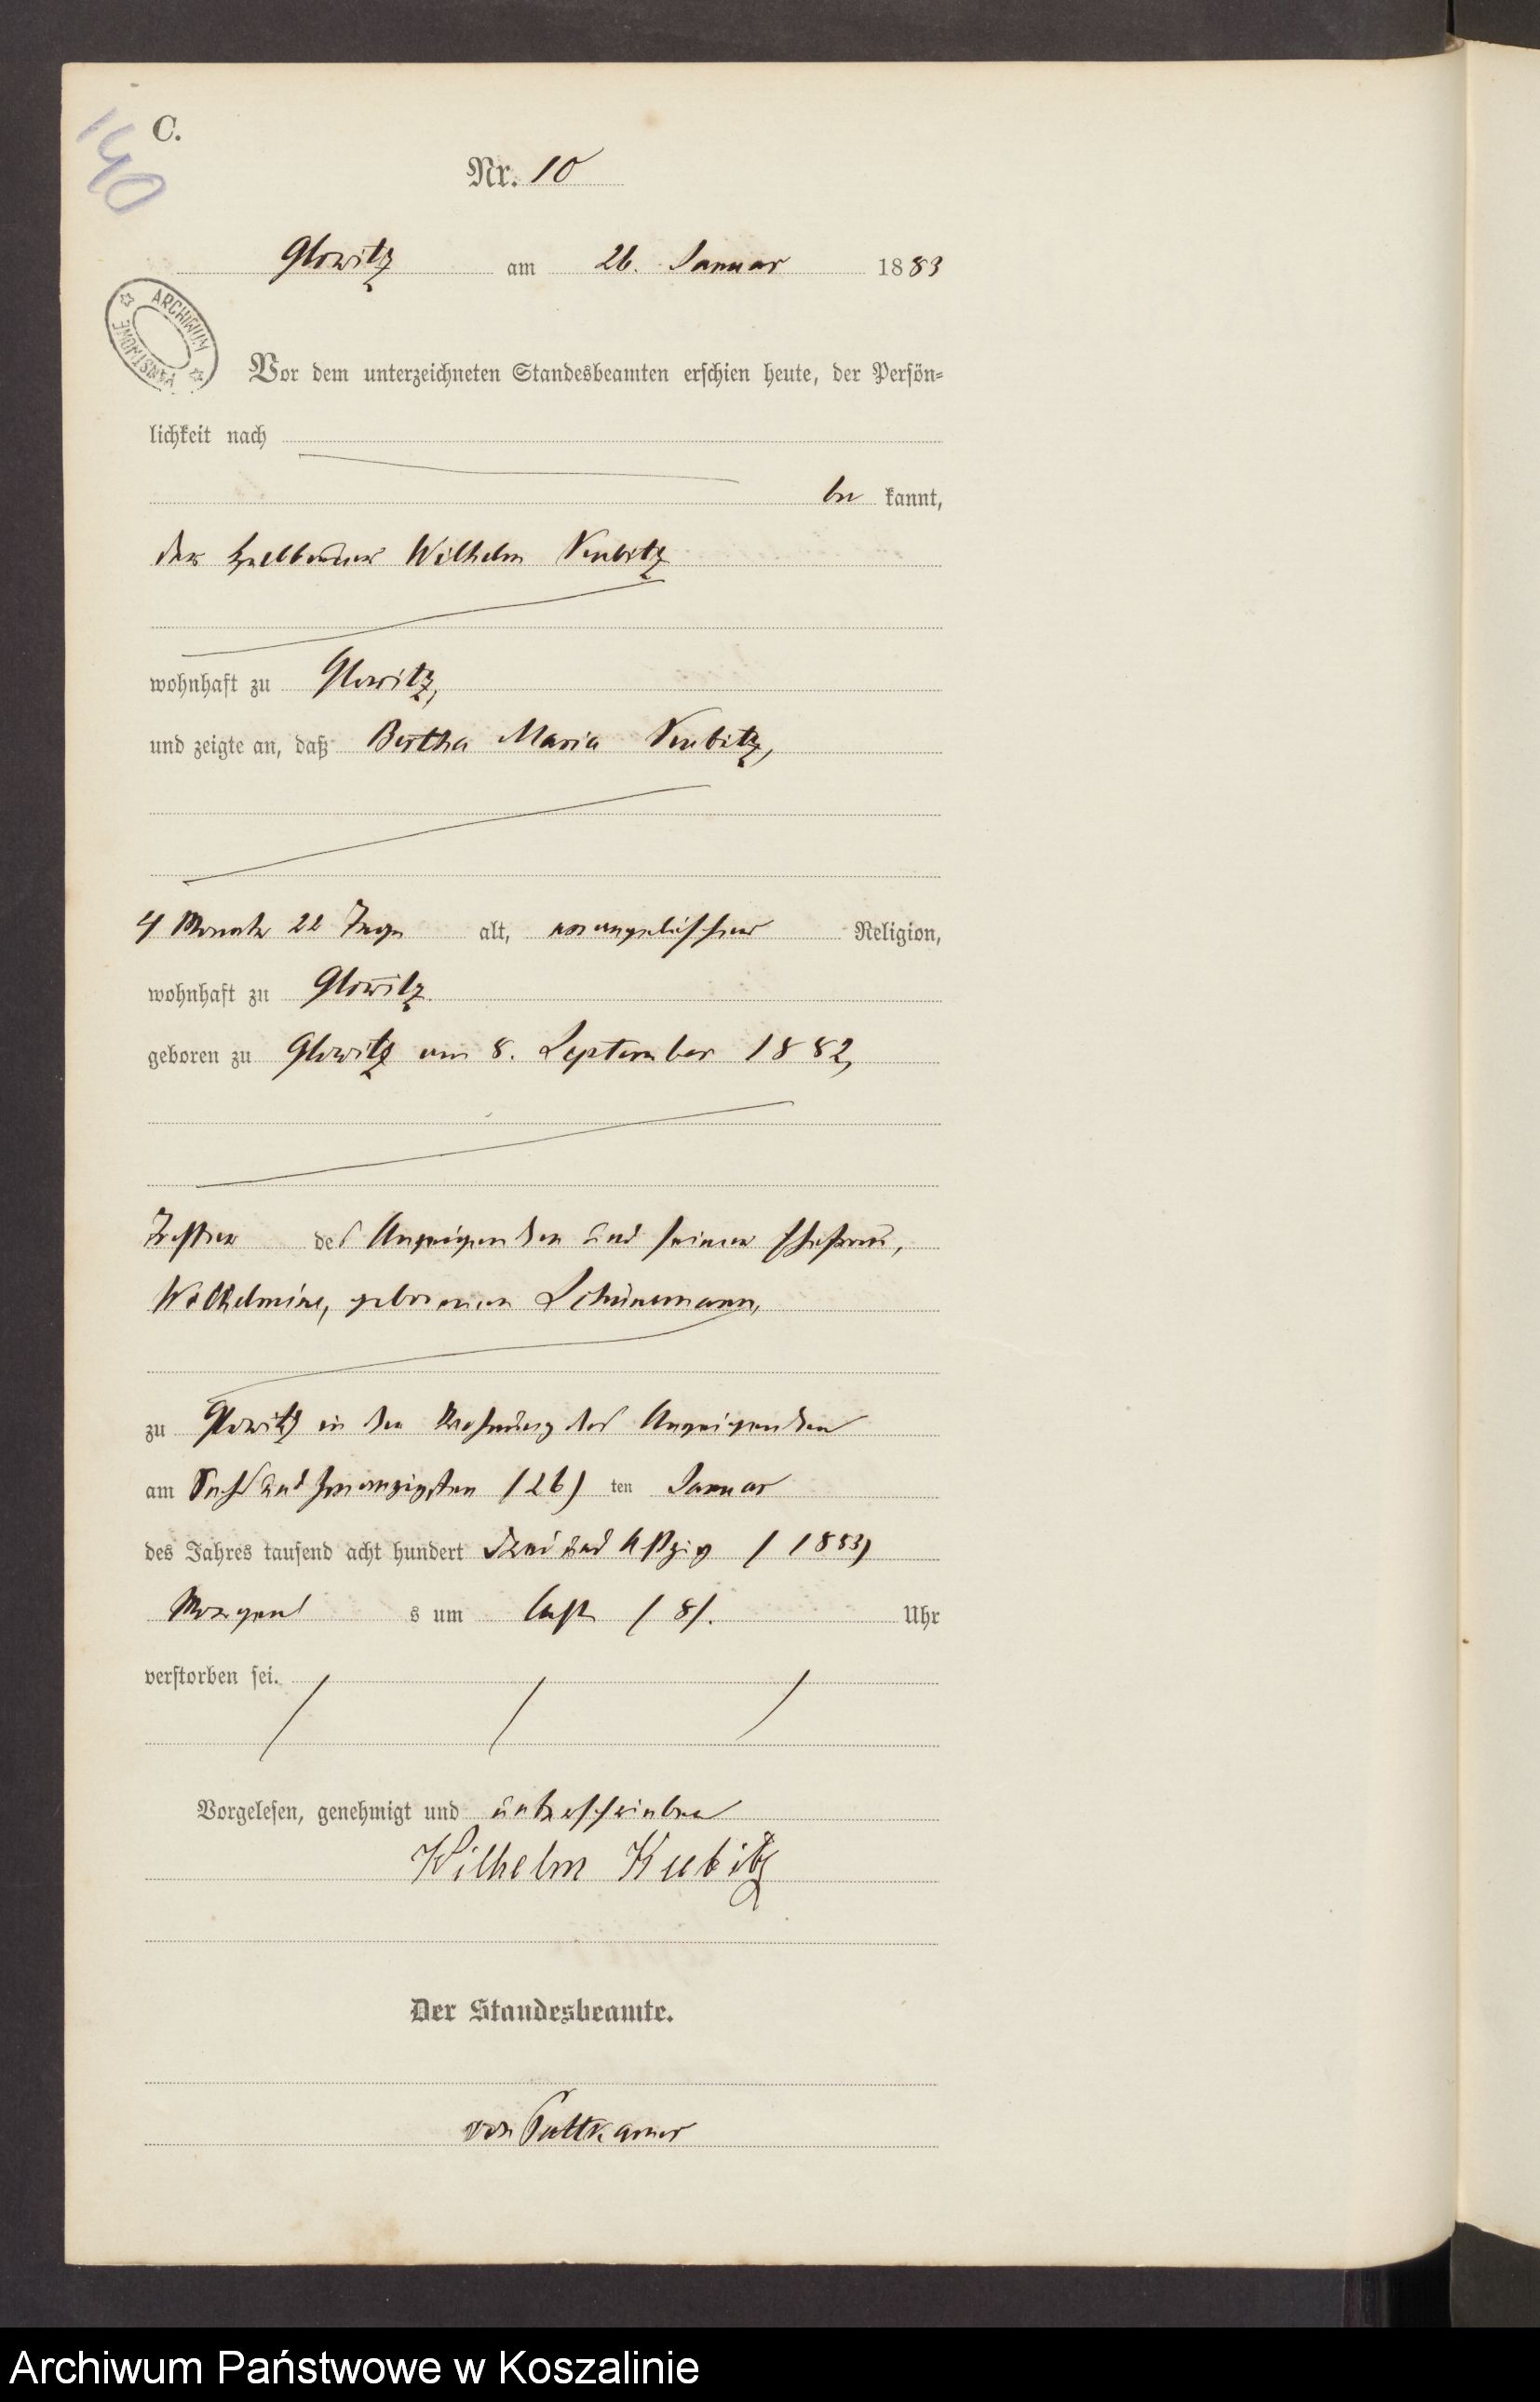 140
C.
Nr. 10
Glowitz am 26. Januar 1883
ARCHIWUM PAŃSTWOWE
Vor dem unterzeichneten Standesbeamten erschien heute, der Persön-
lichkeit nach
be kannt,
der Halbbauer Wilhelm Kubitz
wohnhaft zu Glowitz,
und zeigte an, daß Bertha Maria Kubitz,
4 Monate 22 Tage alt, evangelischer Religion,
wohnhaft zu Glowitz
geboren zu Glowitz am 8. September 1882,
Tochter des Anzeigenden und seiner Ehefrau,
Wilhelmine, geborenen Schünemann,
zu Glowitz in der Wohnung des Anzeigenden
am Sechs und zwanzigsten (26) ten Januar
des Jahres tausend acht hundert drei und achtzig (1883)
Morgens s um acht (8). Uhr
verstorben sei.
Vorgelesen, genehmigt und unterschrieben
Wilhelm Kubitz
Der Standesbeamte.
von Puttkamer
Archiwum Państwowe w Koszalinie